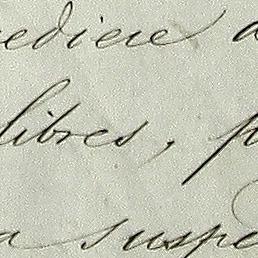 ediere a
libres, p
a suspe